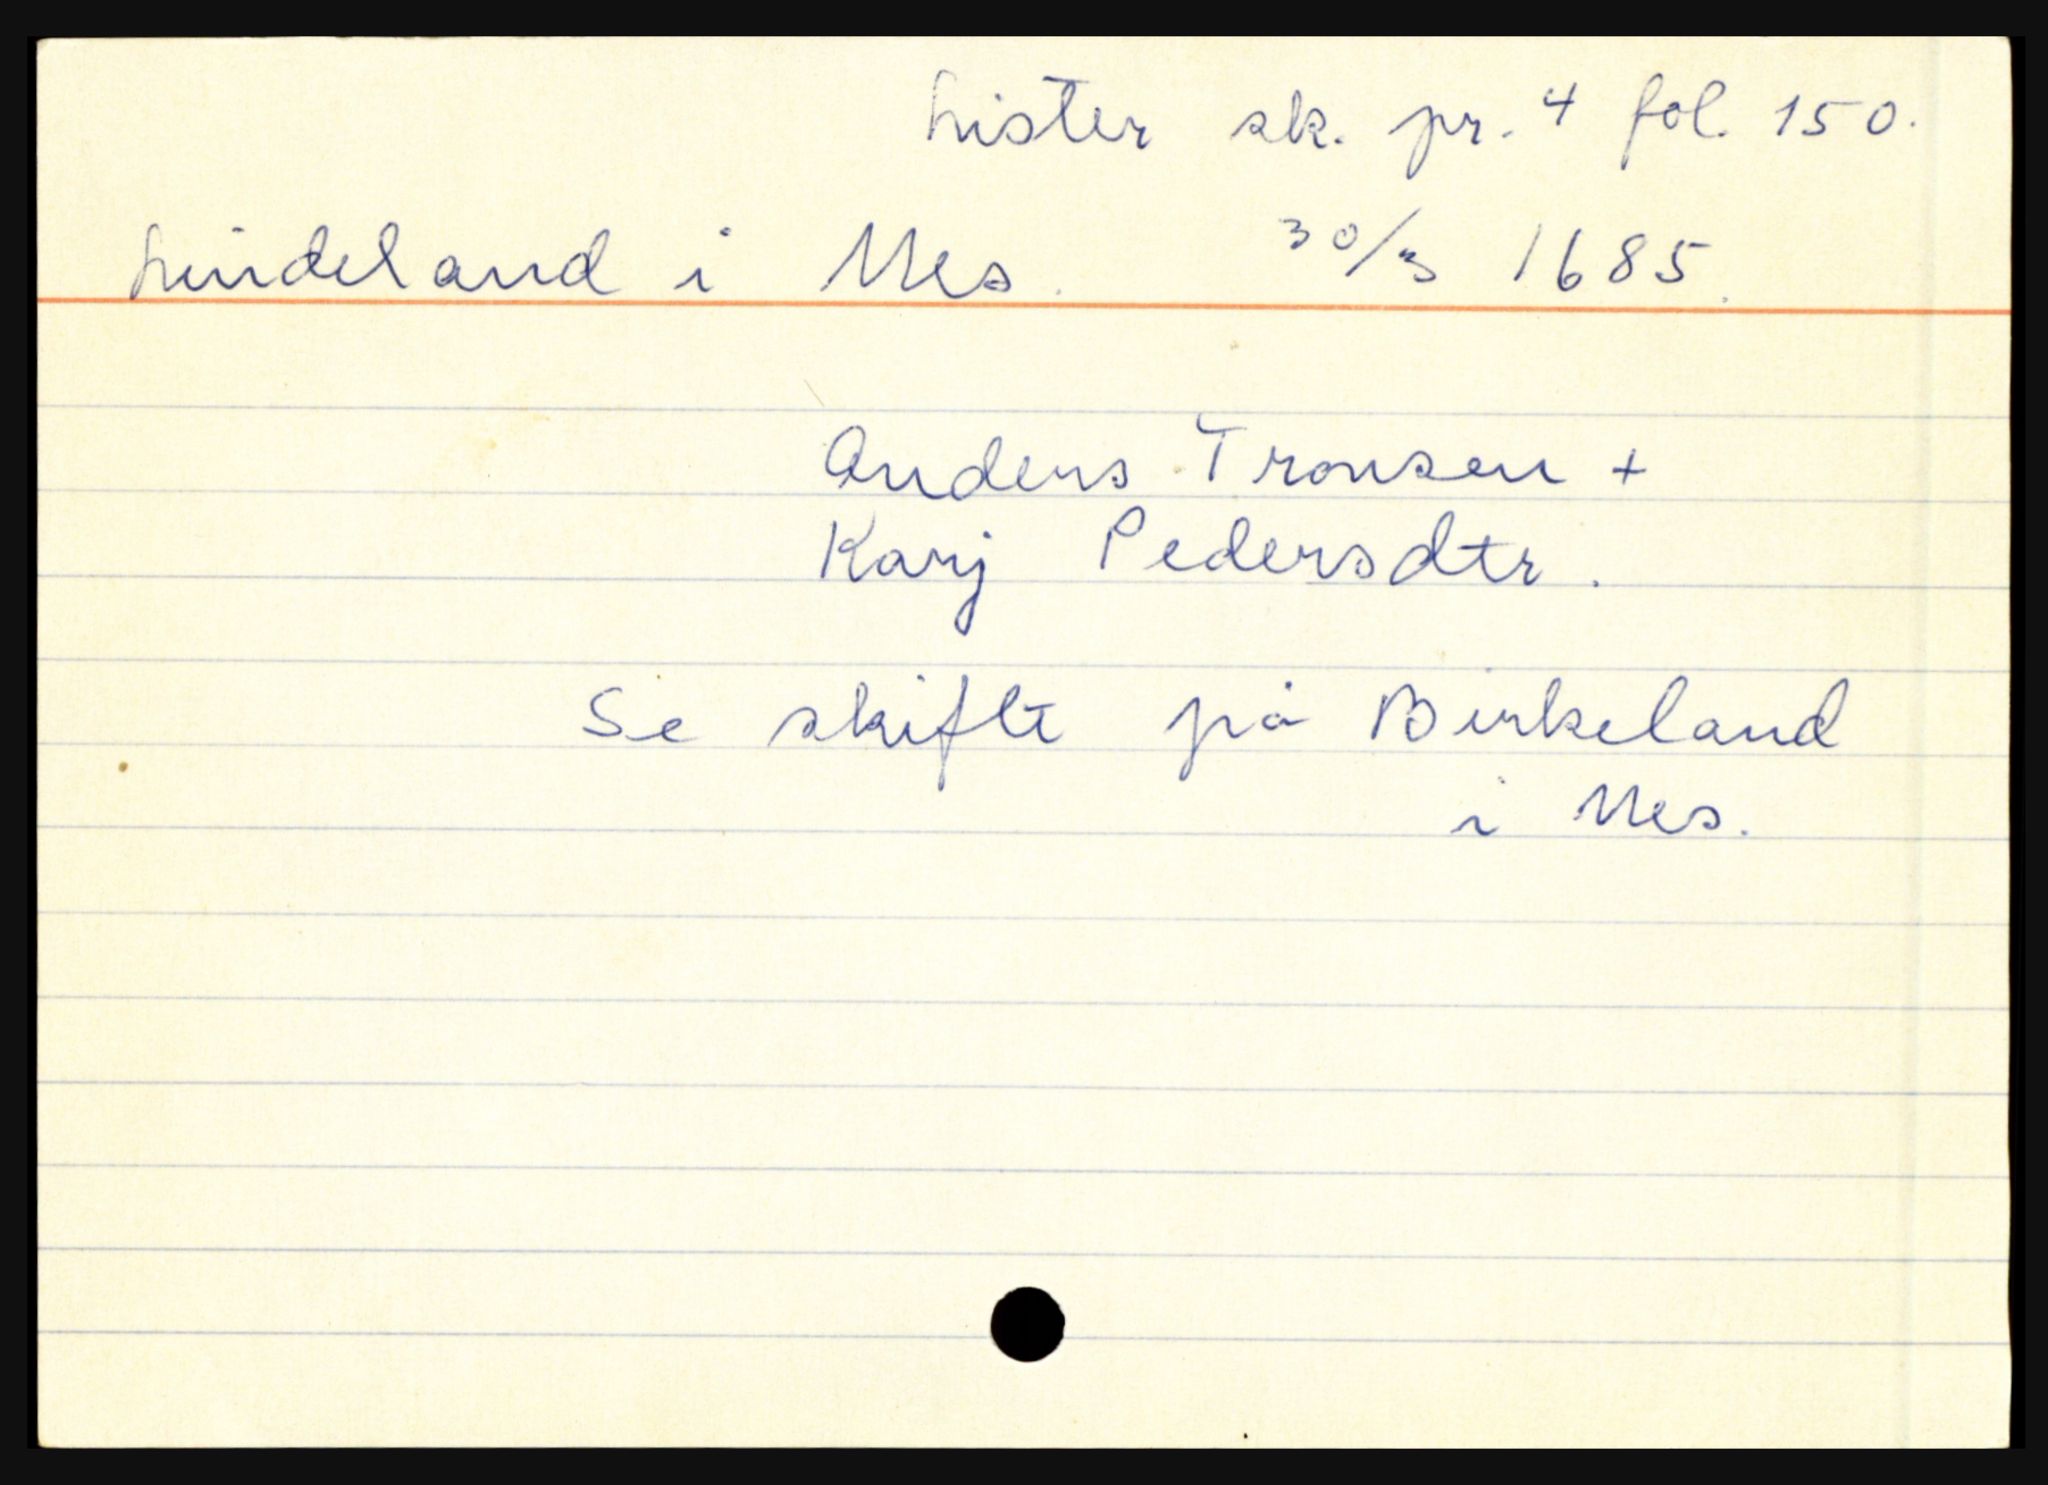 Lister sk. pr. 4 fol. 150.
Lindeland i Nes. 30/3 1685.
Anders Tronsen +
Karj Pedersdtr.
Se skifte på Birkeland
i Nes.